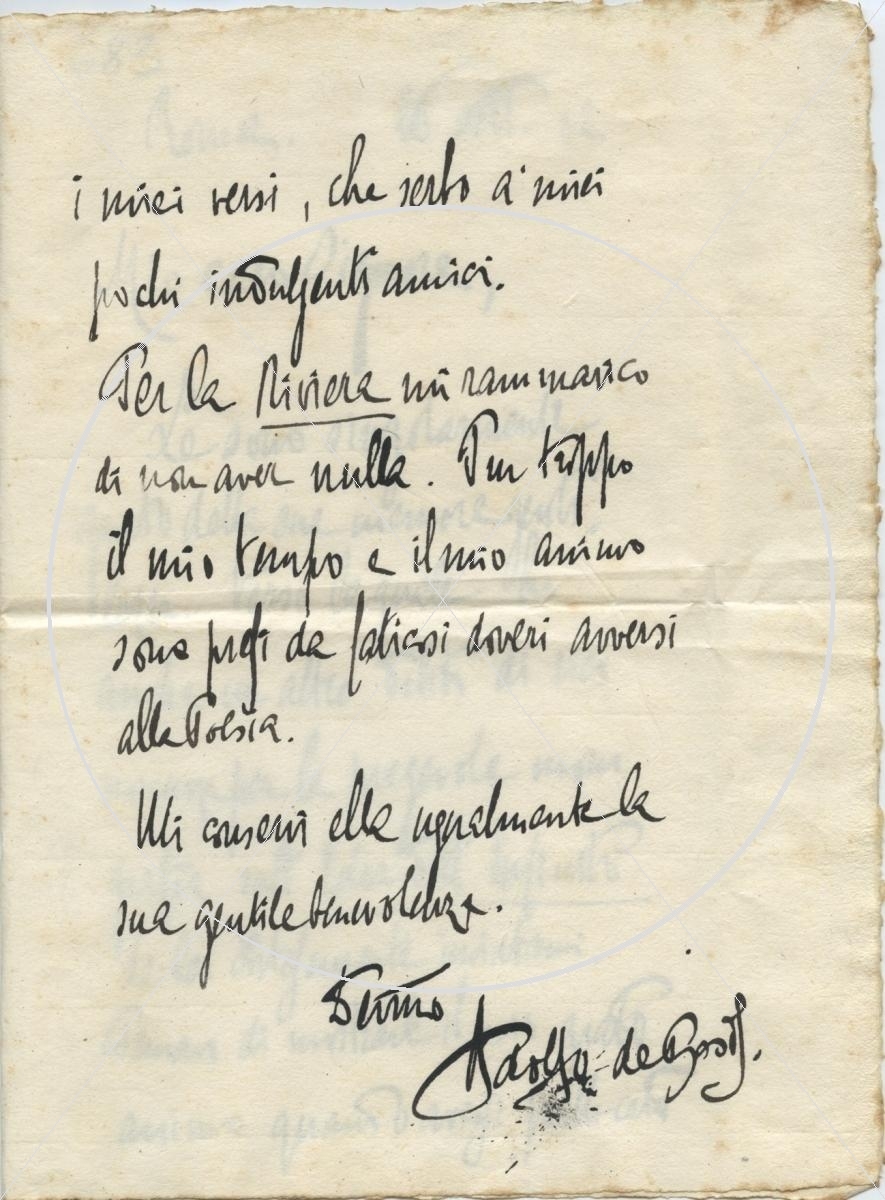 i miei versi, che serbo a' miei
pochi indulgenti amici.
Per la Riviera mi rammarico
di non aver nulla. Pur troppo
il mio tempo e il mio animo
sono presi da faticosi doveri avversi
alla Poesia.
Mi conservi ella ugualmente la
sua gentile benevolenza.
Adolfo de Bosis.